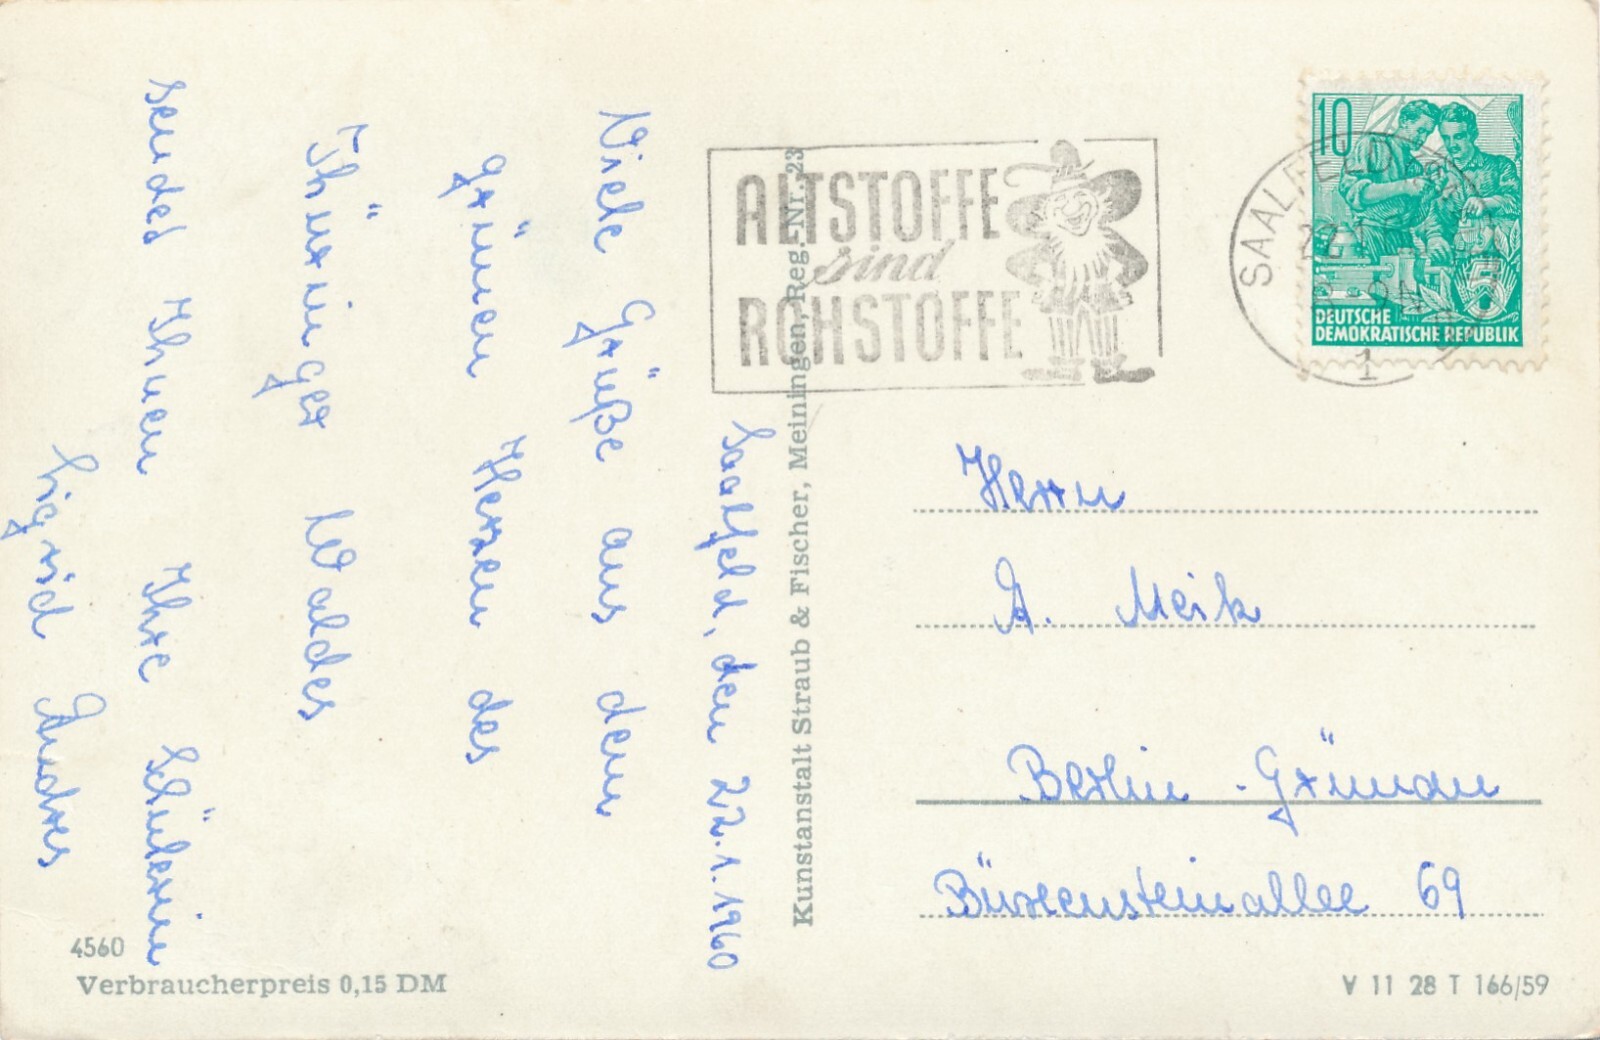 Saalfeld, den 22.1.1960
Viele Grüße aus dem
grünen Herzen des
Thüringer Waldes
sendet Ihnen Ihre Schülerin
Sigrid Andres
4560
Verbraucherpreis 0,15 DM
Kunstanstalt Straub & Fischer, Meiningen, Reg.-Nr. 23
ALTSTOFFE
sind
ROHSTOFFE
10
DEUTSCHE
DEMOKRATISCHE REPUBLIK
5
1
Herrn
A. Meik
Berlin-Grünau
69
V 11 28 T 166/59